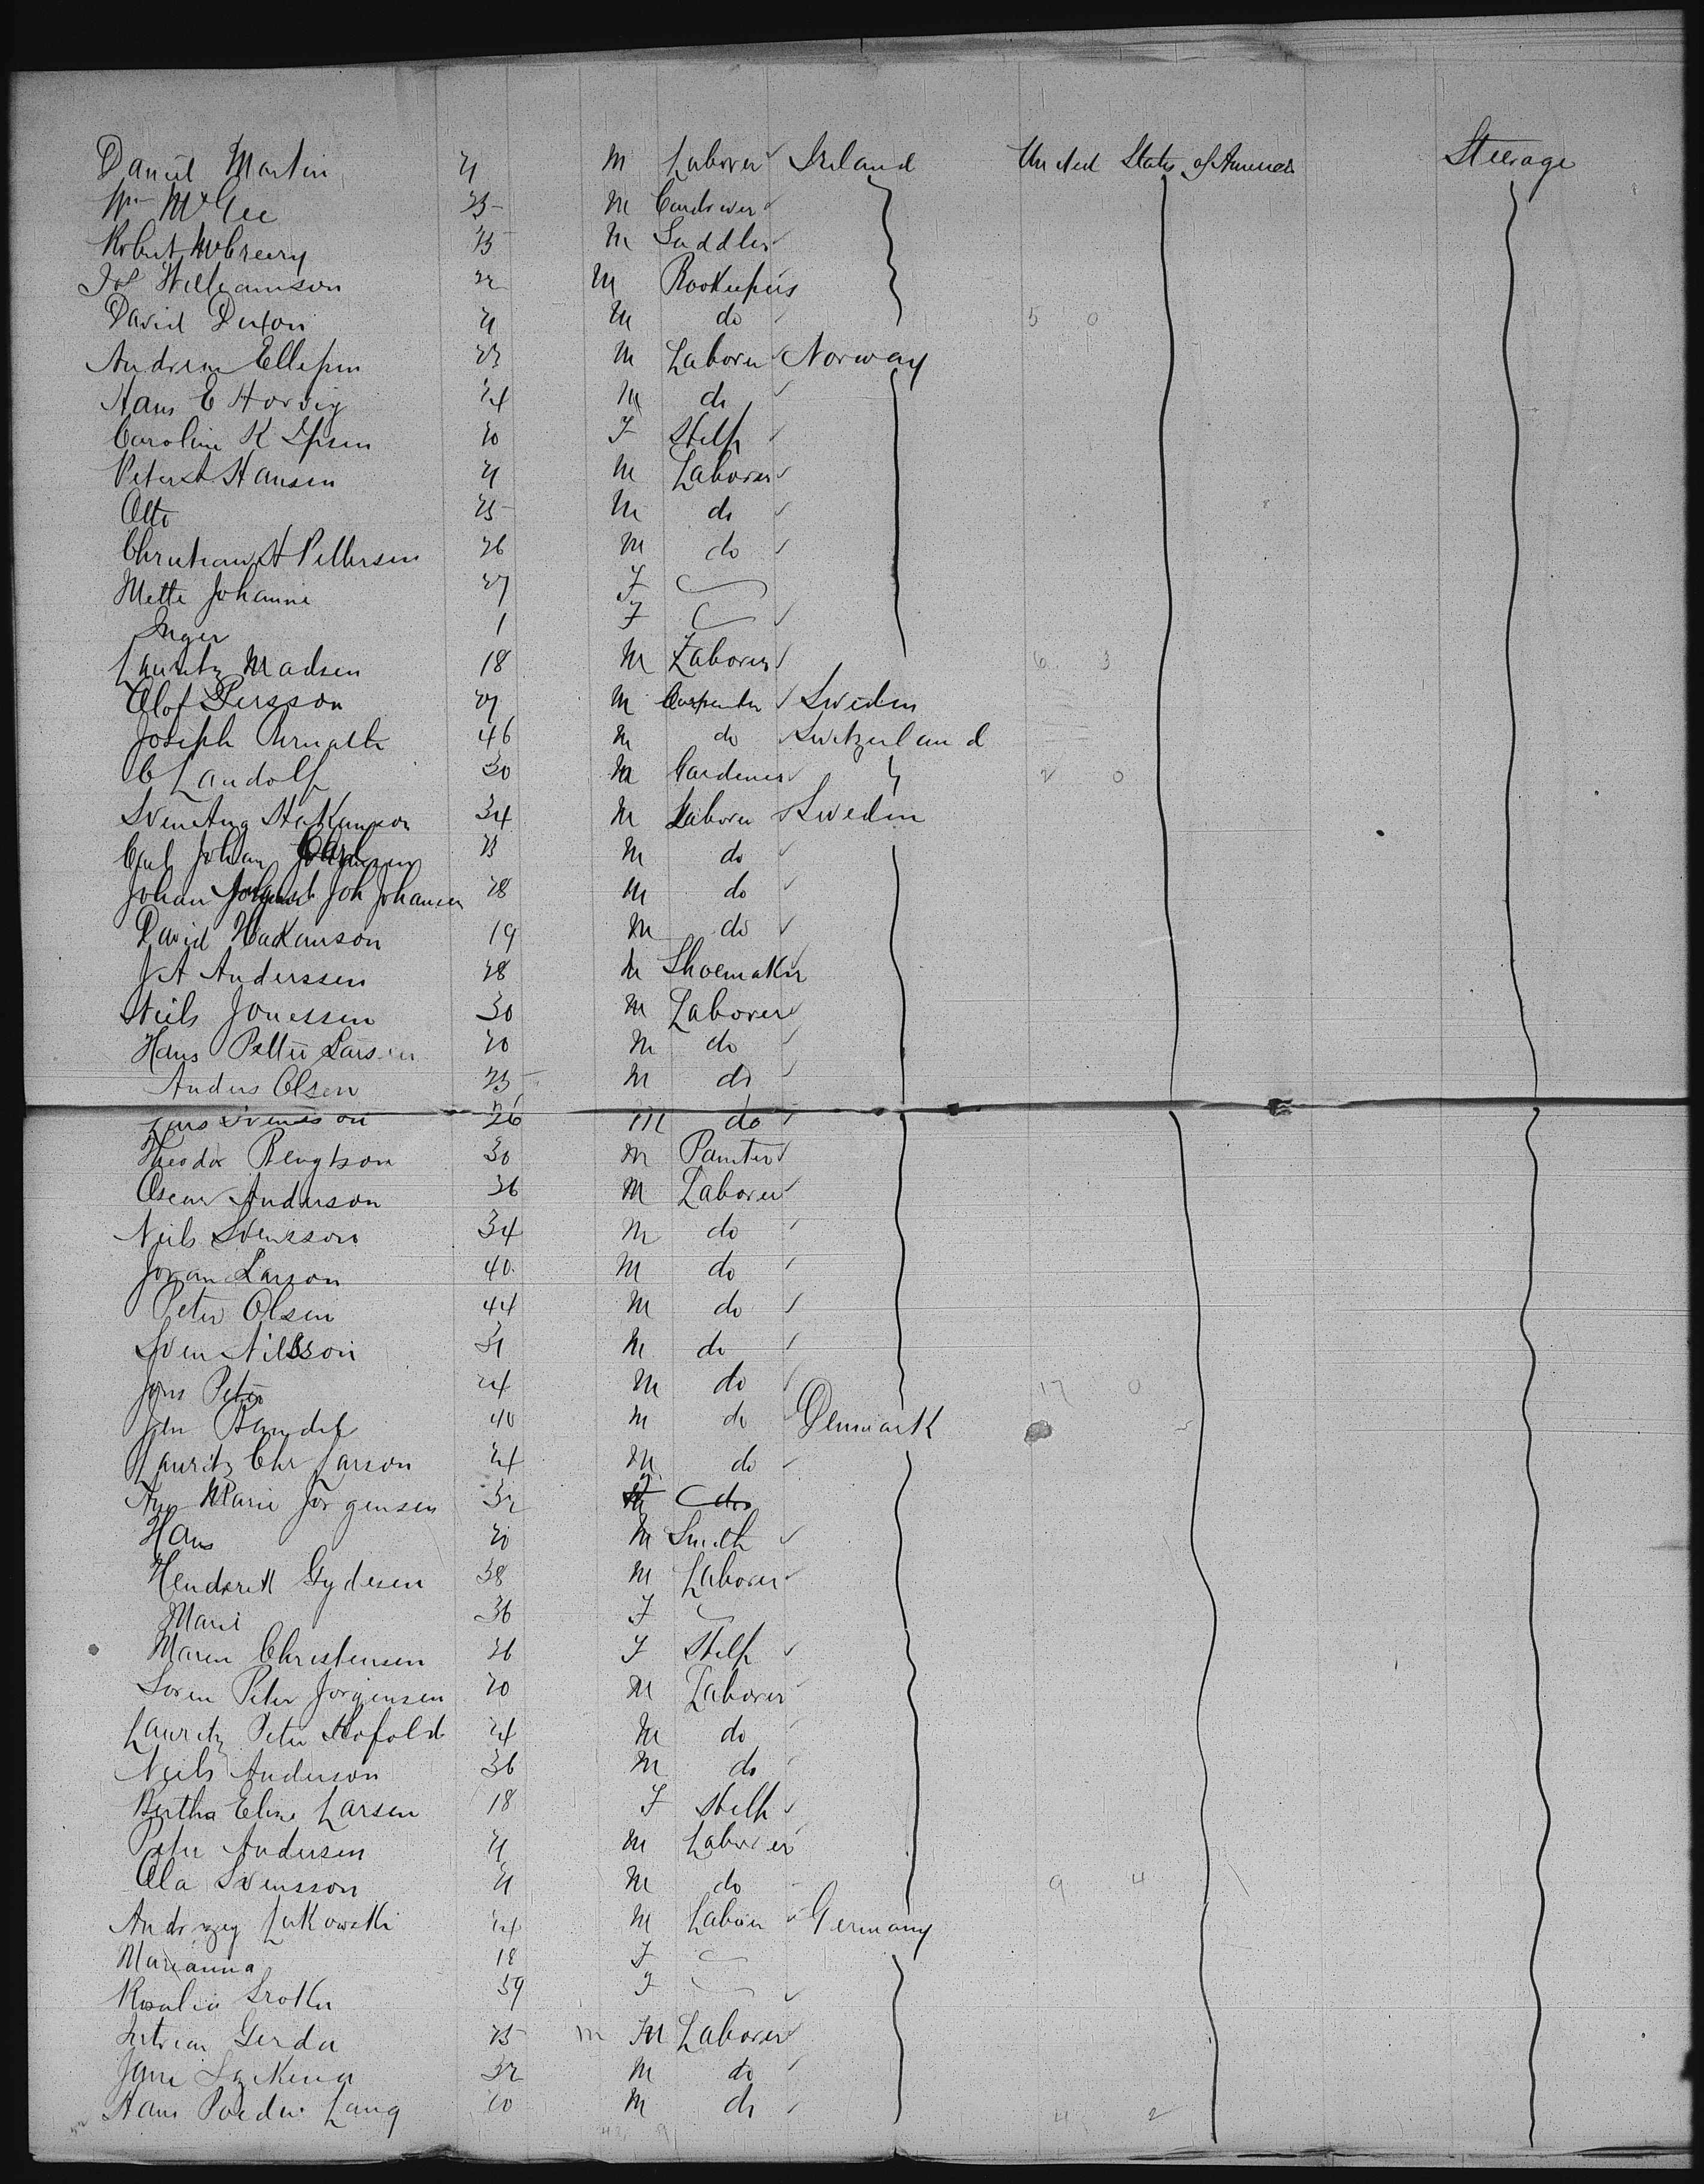 Daniel Martin 21 M Laborer Ireland United States of America Steerage
Wm McGee 25 M
Robert McCreery 25 M Saddler
Jos Williamson 22 M Bookeepers
David Dixon 21 M do 5 0
Andrew Ellefsen 23 M Laborer Norway
Hans E Horvig 24 M do
Caroline K Ipsen 20 F SHelp
Peter A Hansen 21 M Laborer
Otto 25 M do
Christian H Pettersen 26 M do
Mette Johanne 27 F
Inger 1 F
Lauritz Madsen 18 M Laborer 6 3
Olof Persson 27 M Carpenter Sweden
Joseph 46 M do Switzerland
C Landolf 30 M Gardener 2 0
Sven Aug Hakanson 34 M Laborer Sweden
Carl Johan 23 M do
Johan Joh Johansen 28 M do
David Hakanson 19 M do
J A Anderssen 28 M Shoemaker
Niels Jonessen 30 M Laborer
Hans Petter Larsen 20 M do
Anders Olsen 25 M do
Lars Svensson 26 M do
Theodor Bengtson 30 M Painter
Oscar Anderson 36 M Laborer
Niels Svensson 34 M do
Johan Larson 40 M do
Peter Olsen 44 M do
Sven Nilsson 31 M do
Jons Peter 24 M do 17 0
Jen 40 M do Denmark
Lauritz Chr Larson 24 M do
Ane Marie Jorgensen 32 F do
Hans 20 M Smith
Hendrik Gydesen 38 M Laborer
Marie 36 F
Maren Christensen 26 F SHelp
Soren Peter Jorgensen 20 M Laborer
Lauritz Peter Hofoldt 24 M do
Neils Anderson 36 M do
Bertha Eline Larsen 18 F SHelp
Peter Andersen 21 M Laborer
Ola Svensson 21 M do 9 4
Andrzey Lukowski 24 M Laborer Germany
Marianna 18 F
Rosalia 59 F
Gerda 25 m M Laborer
32 M do
Hans Lang 20 M do 4 2
42 9